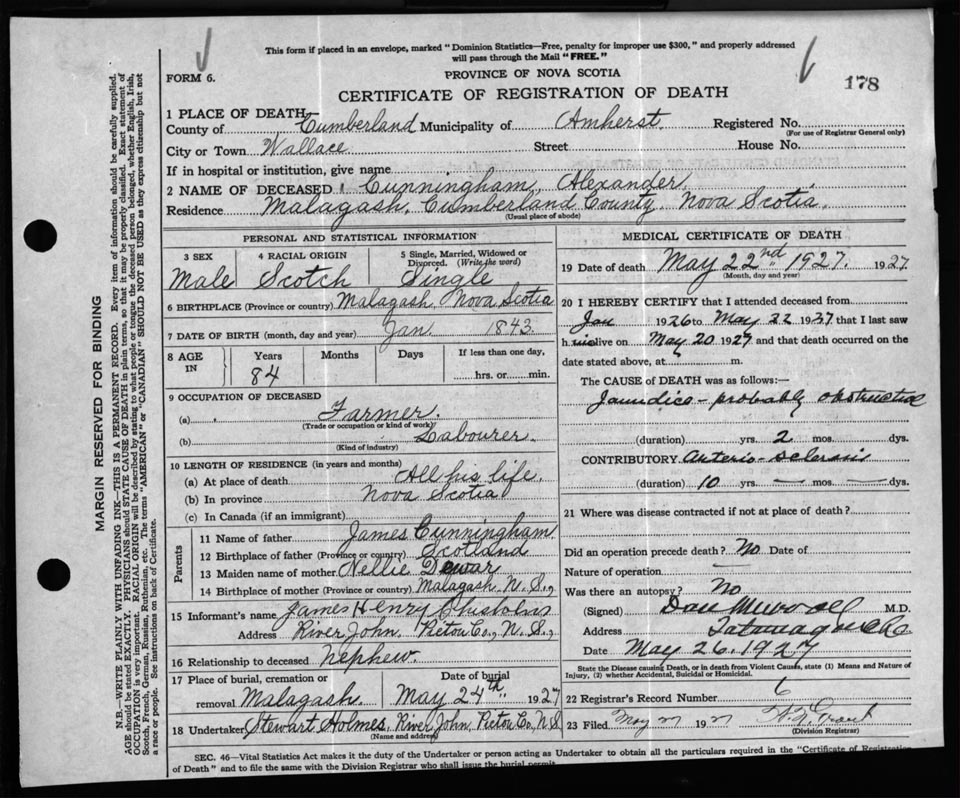 This form if placed in an envelope, marked "Dominion Statistics—Free, penalty for improper use $300," and properly addressed
will pass through the Mail "FREE."
FORM 6.
PROVINCE OF NOVA SCOTIA
178
CERTIFICATE OF REGISTRATION OF DEATH
1 PLACE OF DEATH
County of Cumberland Municipality of Amherst Registered No.
(For use of Registrar General only)
City or Town Wallace Street House No.
If in hospital or institution, give name
2 NAME OF DECEASED Cunningham, Alexander
Residence Malagash, Cumberland County, Nova Scotia.
(Usual place of abode)
PERSONAL AND STATISTICAL INFORMATION
3 SEX 4 RACIAL ORIGIN 5 Single, Married, Widowed or Divorced. (Write the word)
Male Scotch Single
6 BIRTHPLACE (Province or country) Malagash, Nova Scotia
7 DATE OF BIRTH (month, day and year) Jan. 1843
8 AGE IN Years Months Days If less than one day,
84 hrs. or min.
9 OCCUPATION OF DECEASED
(a) Farmer.
(Trade or occupation or kind of work)
(b) Labourer.
(Kind of industry)
10 LENGTH OF RESIDENCE (in years and months)
(a) At place of death All his life.
(b) In province Nova Scotia
(c) In Canada (if an immigrant)
Parents
11 Name of father James Cunningham
12 Birthplace of father (Province or country) Scotland
13 Maiden name of mother Nellie Dewar
14 Birthplace of mother (Province or country) Malagash, N. S.,
15 Informant's name James Henry Chisholm
Address River John. Pictou Co., N. S.,
16 Relationship to deceased nephew.
17 Place of burial, cremation or Date of burial
removal Malagash. May 24th, 1927
18 Undertaker Stewart Holmes, River John, Pictou Co, N S
(Name and address)
MEDICAL CERTIFICATE OF DEATH
19 Date of death May 22nd 1927. 1927
(Month, day and year)
20 I HEREBY CERTIFY that I attended deceased from
Jan 1926 to May 22 1937 that I last saw
h im alive on May 20 1927 and that death occurred on the
date stated above, at m.
The CAUSE OF DEATH was as follows:—
Jaundice - probably obstructive
(duration) yrs. 2 mos. dys.
CONTRIBUTORY Arterio-sclerosis
(duration) 10 yrs. — mos. — dys.
21 Where was disease contracted if not at place of death?
Did an operation precede death? No Date of
Nature of operation —
Was there an autopsy? No
(Signed) Dan M.D.
Address Tatamagouche
Date May 26. 1927
State the Disease causing Death, or in death from Violent Causes, state (1) Means and Nature of
Injury, (2) whether Accidental, Suicidal or Homicidal.
22 Registrar's Record Number 6
23 Filed May 27 1927
(Division Registrar)
SEC. 46—Vital Statistics Act makes it the duty of the Undertaker or person acting as Undertaker to obtain all the particulars required in the "Certificate of Registration
of Death" and to file the same with the Division Registrar who shall issue the burial permit.
MARGIN RESERVED FOR BINDING
N.B.—WRITE PLAINLY WITH UNFADING INK—THIS IS A PERMANENT RECORD. Every item of information should be carefully supplied.
AGE should be stated EXACTLY. PHYSICIANS should STATE CAUSE OF DEATH in plain terms, so that it may be properly classified. Exact statement of
OCCUPATION is very important. RACIAL ORIGIN will be described by stating to what people or tongue the deceased person belonged, whether English, Irish,
Scotch, French, German, Russian, Ruthenian, etc. The terms "AMERICAN" or "CANADIAN" SHOULD NOT BE USED as they express citizenship but not
a race or people. See instructions on back of Certificate.